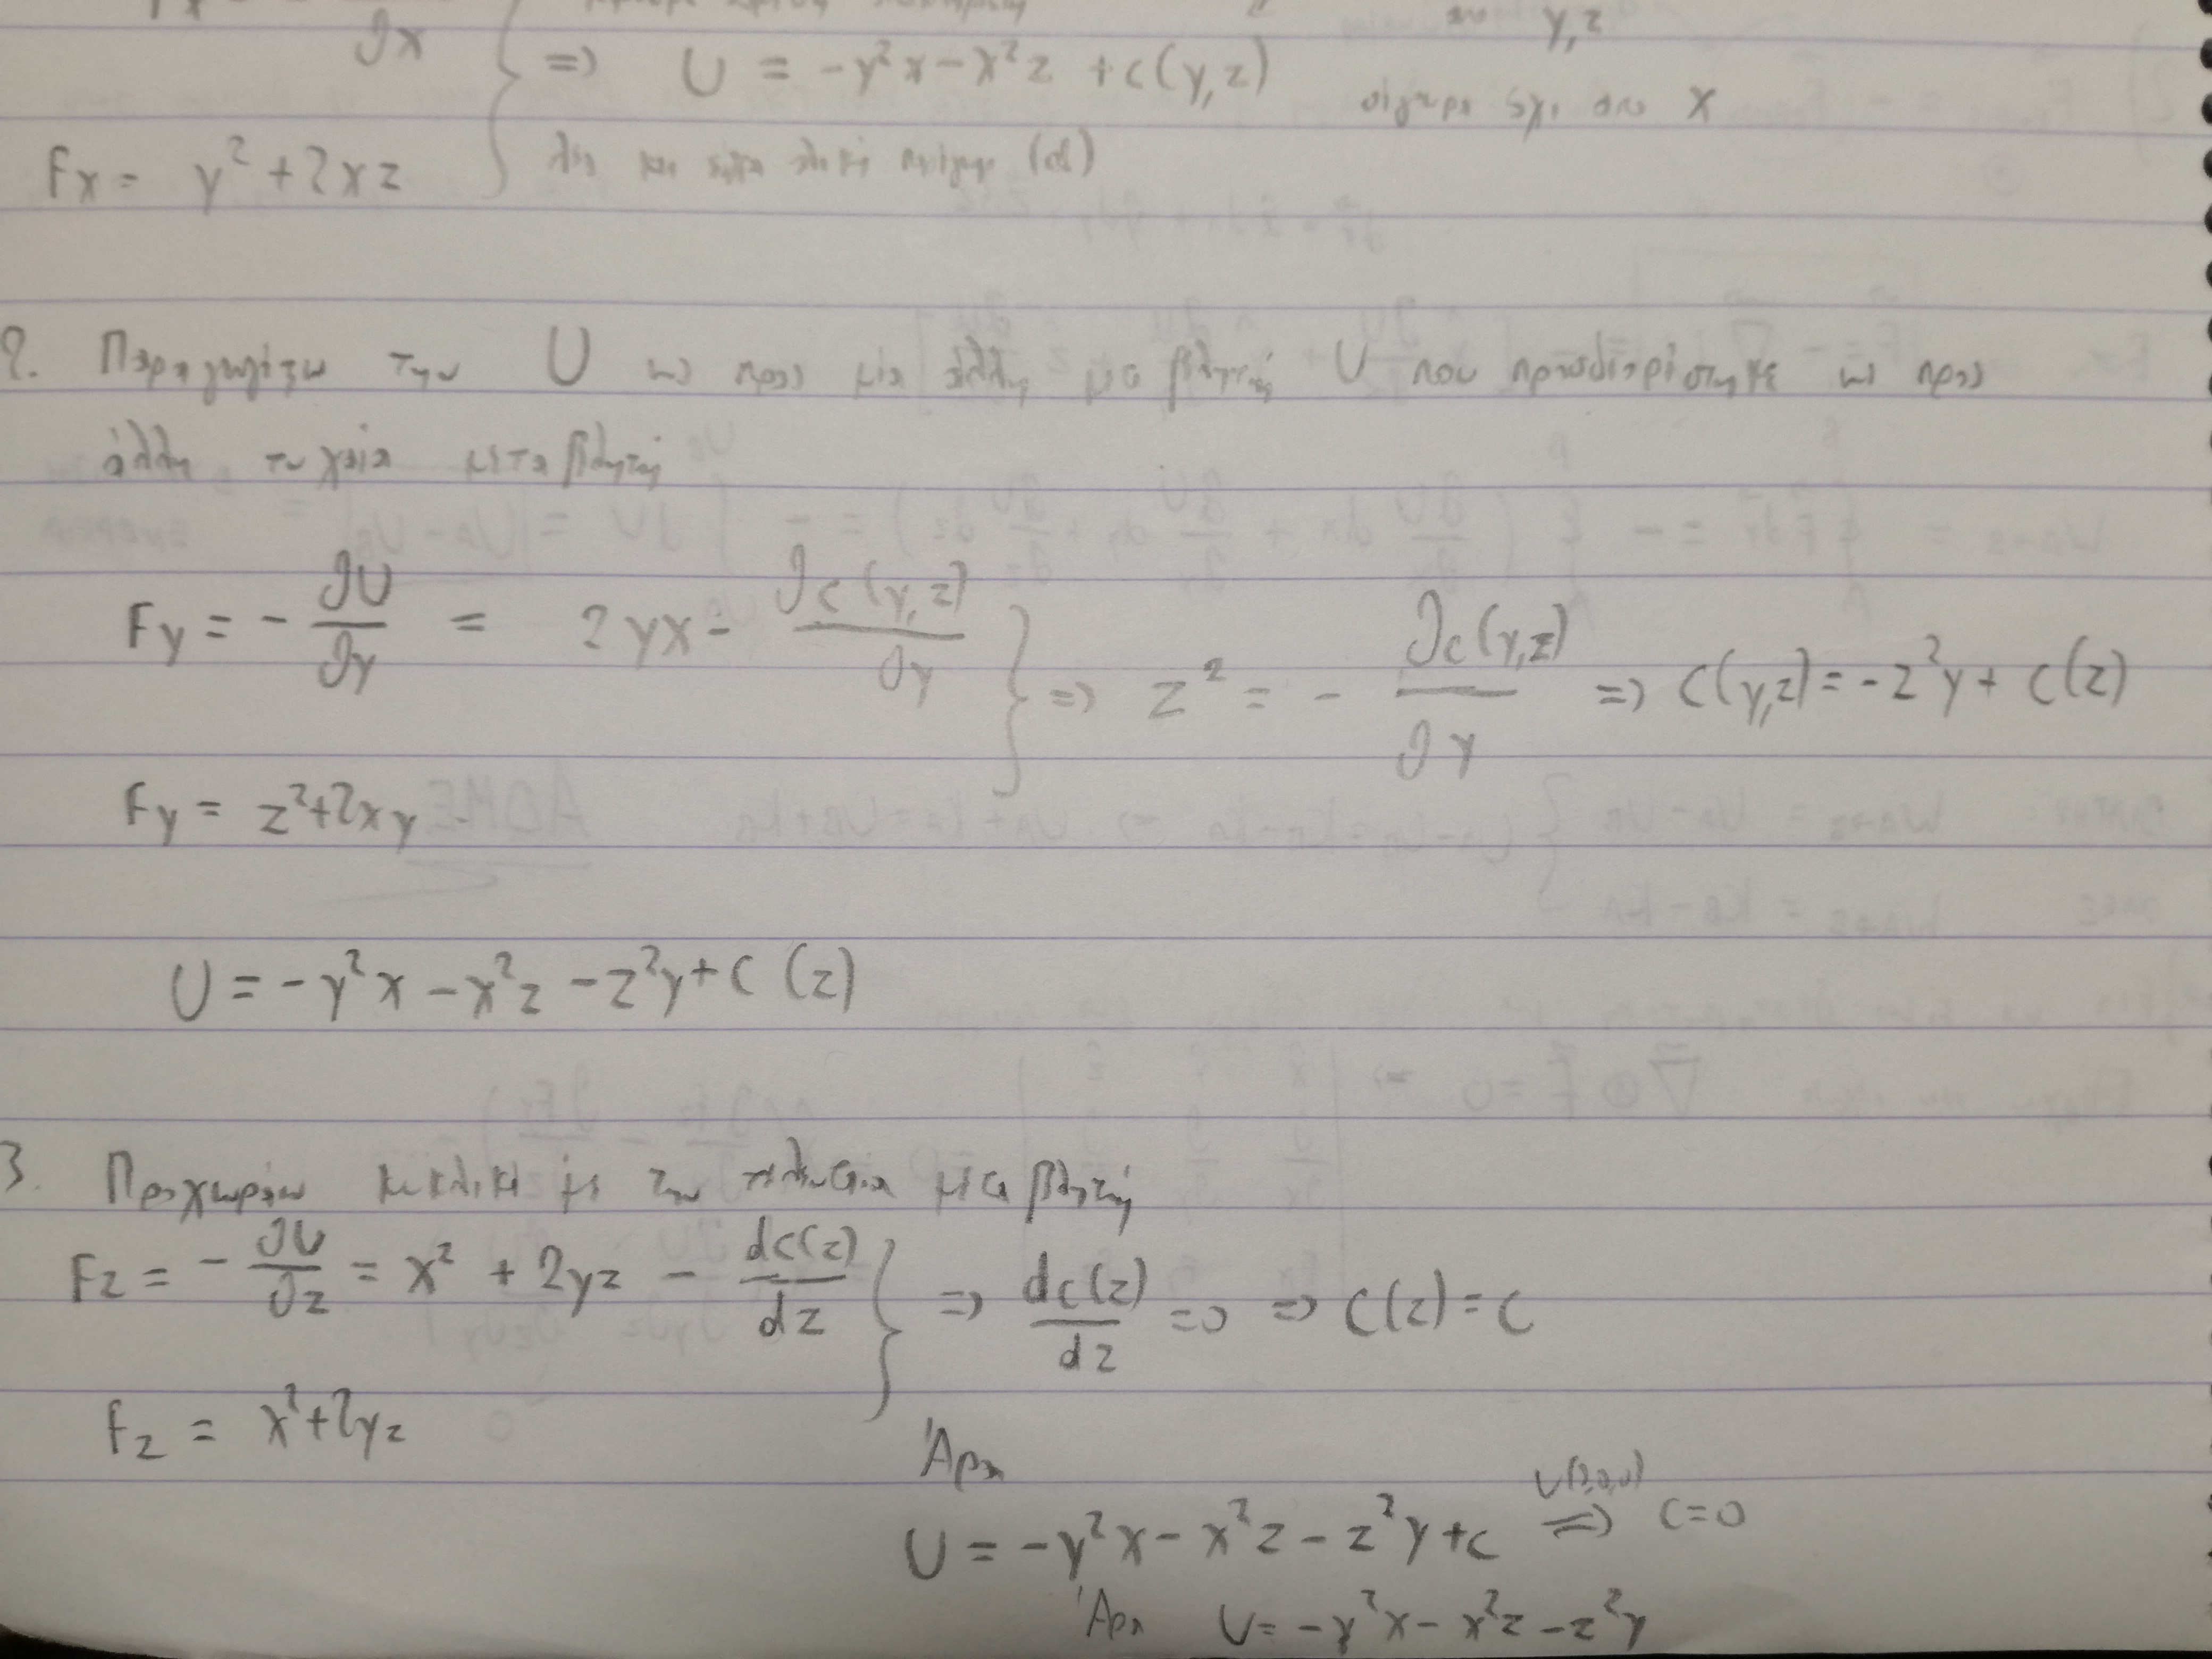 ∂x
=> U = -y²x - x²z + c(y,z)
στο y,z
σίγουρα όχι στο x
Fx = y² + 2xz
2. Παραγωγίζω την U ως προς μία άλλη U που προσδιορίστηκε ως προς
άλλη τυχαία μεταβλητή
Fy = - ∂U/∂y = 2yx - ∂c(y,z)/∂y } => z² = - ∂c(y,z)/∂y => c(y,z) = -z²y + c(z)
Fy = z² + 2xy
U = -y²x - x²z - z²y + c(z)
3. Προχωράω κυκλικά με την τελευταία μεταβλητή
Fz = - ∂U/∂z = x² + 2yz - dc(z)/dz } => dc(z)/dz = 0 => c(z) = c
Fz = x² + 2yz
Άρα
U = -y²x - x²z - z²y + c => c = 0
Άρα U = -y²x - x²z - z²y